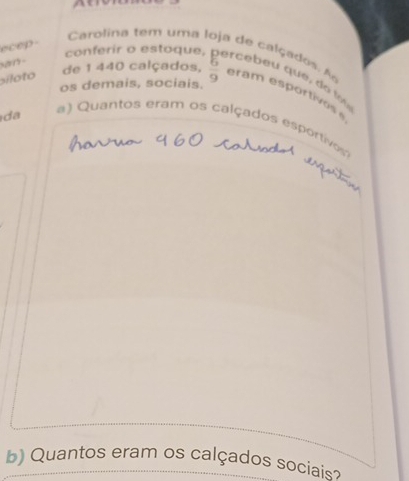 ecep-
pan-
piloto
da
Carolina tem uma loja de calçados. Ao
conferir o estoque, percebeu que, do total
de 1 440 calçados, 6/9 eram esportivos e,
os demais, sociais.
a) Quantos eram os calçados esportivos?
havia 960 calçados esportivos
b) Quantos eram os calçados sociais?